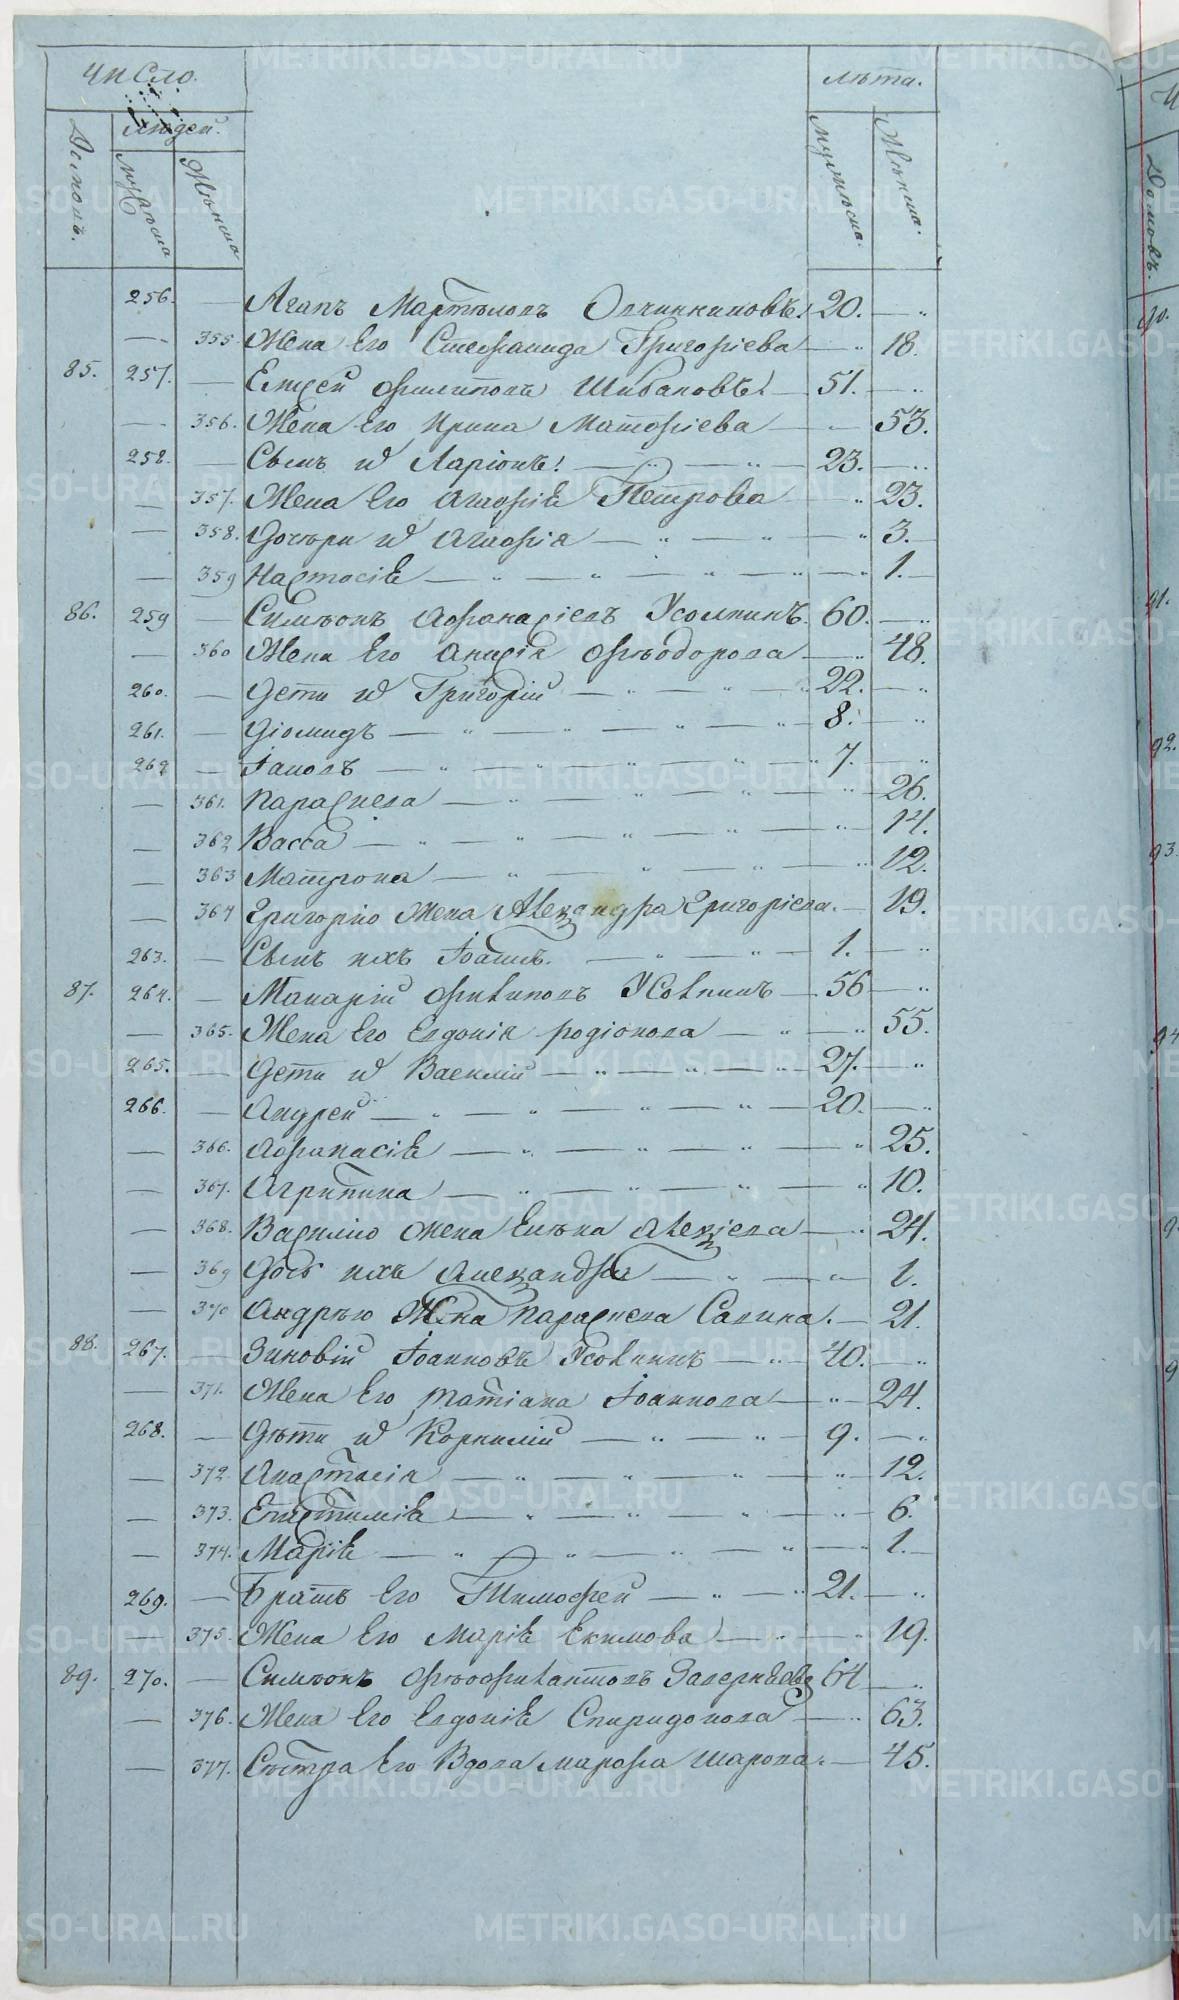 число.
лѣта.
Домовъ.
людей.
мужеска
женска
мужеска.
женска.
256. — Агапъ Мартѣмовъ Овчинниковъ. 20. — „
— 355 Жена Его Стефанида Григоріева — „ 18.
85. 257. — Елисей Филиповъ Шибаковъ. — 51. — „
— 356. Жена Его Ирина Матфѣева — — 53.
258. — Сынъ и҃ Ларіонъ. — „ — „ — 23. — „
— 357. Жена Его Агафія Петрова — „ 23.
— 358. Дочери и҃ Агафія — „ — „ — „ 3. —
— 359 Настасія — „ — „ — „ — „ — „ 1. —
86. 259 — Симеонъ Афанасіевъ Усолкинъ. 60. — „
— 360 Жена Его Анисія Фѣодорова — „ 48.
260. — Дети и҃ Григорій — „ — „ — „ 22. — „
261. — Діомидъ — „ — „ — „ — „ — 8. — „
262 — Іаковъ — „ — „ — „ — „ — „ 7. — „
— 361. Параскева — „ — „ — „ — „ 26.
— 362 Васса — „ — „ — „ — „ — „ 14.
— 363 Матрона — „ — „ — „ — „ 12.
— 364 Григорію жена Александра Григоріева. — 19.
263. — Сынъ ихъ Іоаннъ. — „ — „ — 1. — „
87. 264. — Макарій Филиповъ Усолкинъ — 56 — „
— 365. Жена Его Евдокія родіонова — „ — „ 55.
265. — Дети и҃ Василій — „ — „ — „ — 27. — „
266. — Андрей — „ — „ — „ — „ — 20. — „
— 366. Афанасія — „ — „ — „ — „ 25.
— 367. Агрипина — „ — „ — „ — „ 10.
— 368. Василію жена Елѣна Алексіева — „ 24.
— 369 Дочь ихъ Александра — „ — „ 1.
— 370 Андрѣю Жена Параскева Савина. — 21.
88. 267. — Зиновій Іоанновъ Усолкинъ — „ — 40. — „
— 371. Жена Его татіана Іоаннова — „ — 24.
268. — Дѣти и҃ Корнилій — „ — „ — 9. — „
— 372. Анастасія — „ — „ — „ — „ 12.
— 373. Епистимія — „ — „ — „ — „ 6.
— 374. Марія — „ — „ — „ — „ — 1. —
269. — Братъ Его Тимофей — „ — „ 21. — „
— 375. Жена Его Марія Екимова — „ — „ 19.
89. 270. — Симеонъ Фѣофилактовъ 64 — „
— 376. Жена Его Евдокія Спиридонова — „ 63.
— 377. Сестра Его Вдова марфа Шарова. — 45.